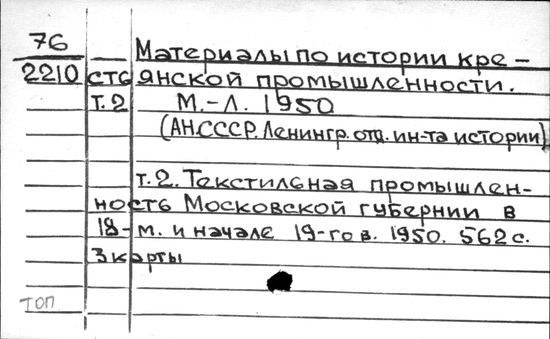 76 Материалы по истории кре-
2210 стьянской промышленности.
т.2 М.-Л. 1950
(АН.СССР. Ленингр. отд. ин-та истории)
т.2. Текстильная промышлен-
ность Московской губернии в
18-м. и начале 19-го в. 1950. 562 с.
3 карты
ТОП